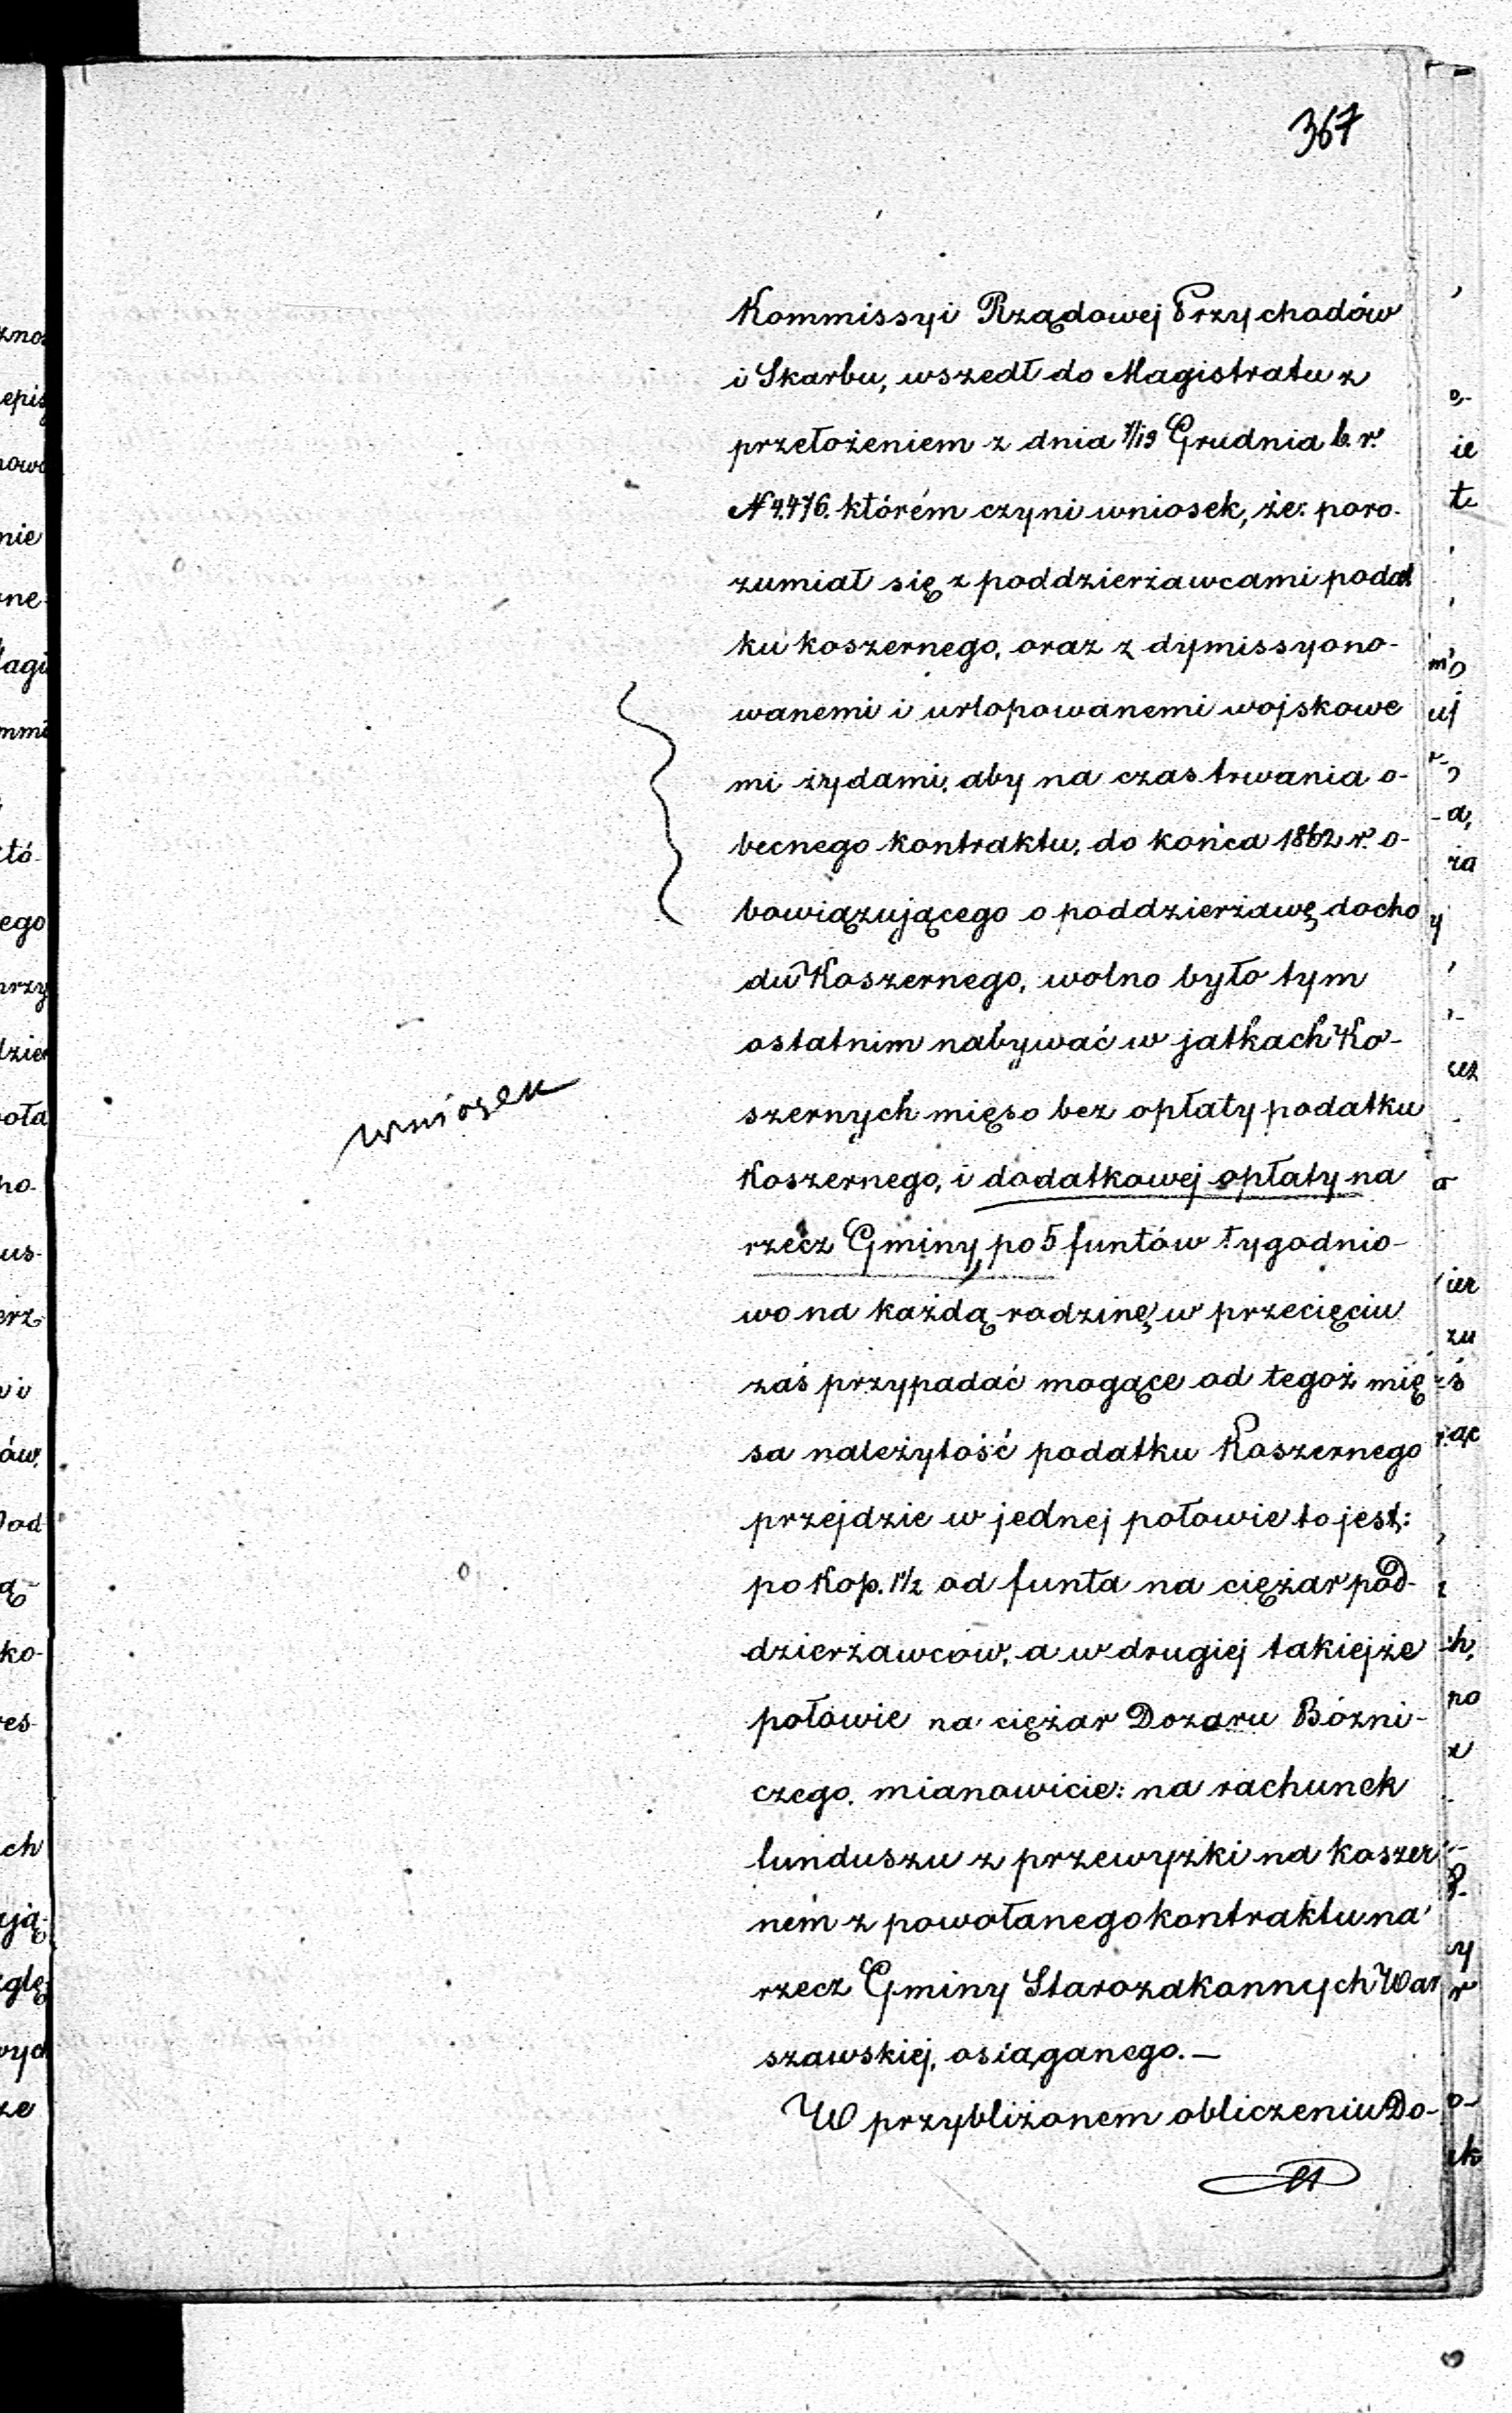 367
Kommissyi Rządowej Przychodów
i Skarbu, wszedł do Magistratu z
przełożeniem z dnia 7/19 Grudnia b. r.
którém czyni wniosek, że: poro-
zumiał się z poddzierżawcami podat
ku koszernego, oraz z dymissyono-
wanemi i urlopowanemi wojskowe
mi żydami, aby na czas trwania o-
becnego kontraktu, do końca 1862 r. o-
bowiązującego o poddzierżawę docho
du Koszernego, wolno było tym
ostatnim nabywać w jatkach Ko-
wniosek
szernych mięso bez opłaty podatku
Koszernego, i dodatkowej opłaty na
rzecz Gminy, po 5 funtów tygodnio-
wo na każdą rodzinę, w przecięciu
zaś przypadać mogące od tegoż mię
sa należytość podatku Koszernego
przejdzie w jednej połowie to jest:
po Kop. 1 1/2 od funta na ciężar pod-
dzierżawców, a w drugiej takiejże
połowie na ciężar Dozoru Bózni-
czego, mianowicie: na rachunek
funduszu z przewyżki na koszer
ném z powołanego kontraktu na
rzecz Gminy Starozakonnych War
szawskiej, osiąganego. —
W przybliżonem obliczeniu Do-